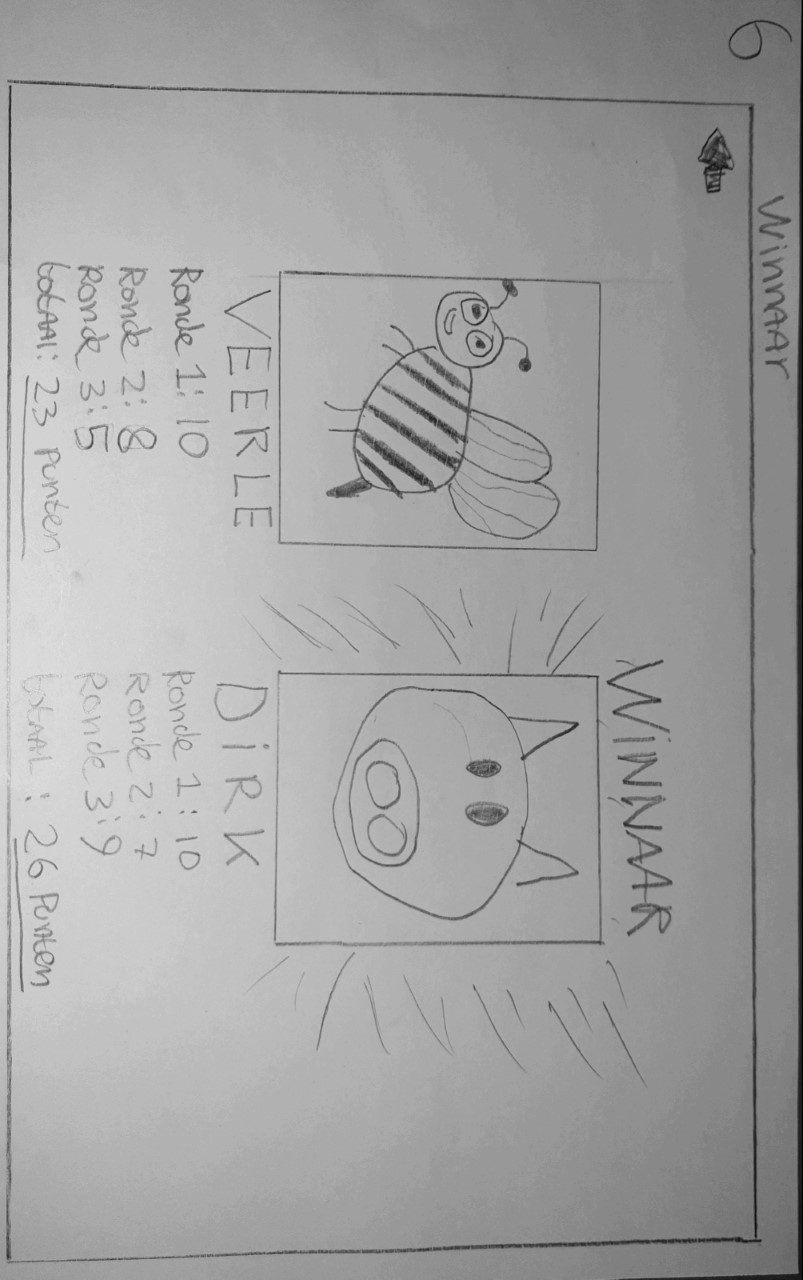 6
Winnaar
WiNNAAR
VEERLE
Ronde 1: 10
Ronde 2: 8
Ronde 3: 5
totaal: 23 punten
DiRK
Ronde 1: 10
Ronde 2: 7
Ronde 3: 9
totaal: 26 Punten